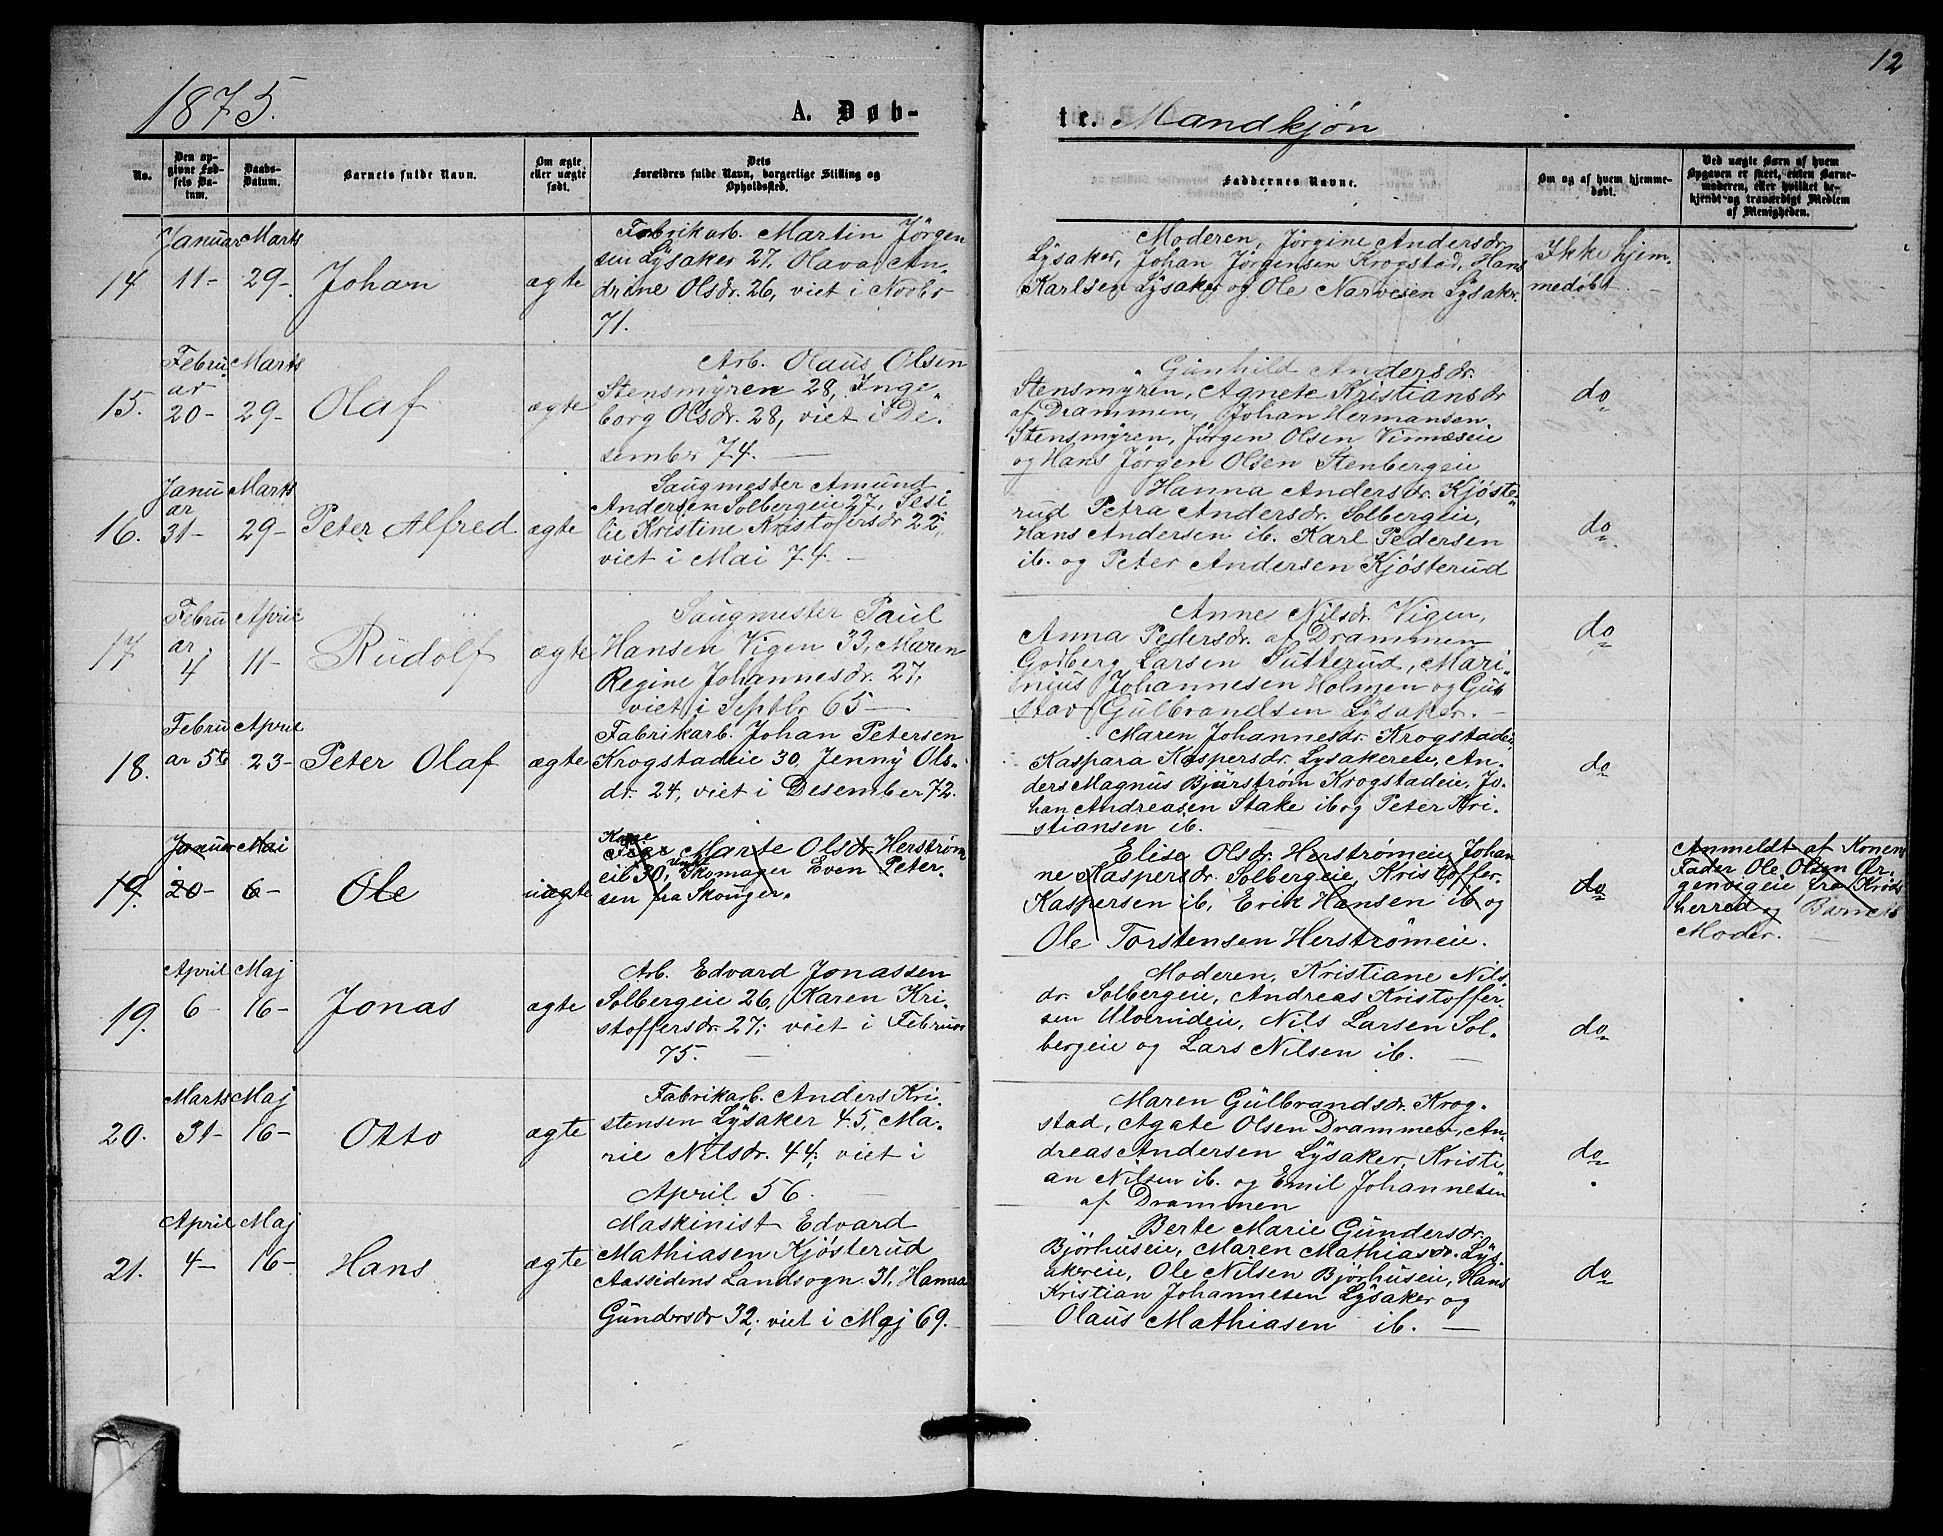 12
1875.
A. Døb-
te. Mandkjøn
No.
Den op-
givne Fød-
sels Da-
tum.
Daabs-
Datum.
Barnets fulde Navn.
Om ægte
eller uægte
født.
Dets
Forældres fulde Navn, borgerlige Stilling og
Opholdssted.
Faddernes Navne.
Om og af hvem hjemme-
døbt.
Ved uægte Børn af hvem
Opgaven er skeet, enten Barne-
moderen, eller hvilket be-
kjendt og troværdigt Medlem
af Menigheden.
14
Januar
11-
Marts
29-
Johan
ægte
Fabrikarb. Martin Jörgen
sen Lÿsaker 27, Olava An-
drine Olsdr. 26, viet i Novbr
71.
Moderen, Jørgine Andersdr.
Lÿsaker, Johan Jørgensen Krogstad, Hans
Karlsen Lÿsaker og Ole Narvesen Lÿsaker.
Ikke hjem-
medøbt.
15.
Febru
ar
20-
Marts
29-
Olaf
ægte
Arb. Olaus Olsen
Stensmÿren 28, Inge-
borg Olsdr. 28, viet i De-
sember 74.
Gunhild Andersdr.
Stensmÿren, Agnete Kristiansdr
af Drammen, Johan Hermansen
Stensmÿren, Jørgen Olsen Vinnæseie
og Hans Jørgen Olsen Stenbergeie
do
16.
Janu
ar
31-
Marts
29-
Peter Alfred
ægte
Saugmester Amund
Andersen Solbergeie 27, Sesi
lie Kristine Kristofersdr 22,
viet i Mai 74.
Hanna Andersdr. Kjöste-
rud Petra Andersdr. Solbergeie,
Hans Andersen ib. Karl Pedersen
ib. og Peter Andersen Kjösterud
do
17
Febru
ar.
4
April
11-
Rudolf
ægte
Saugmester Paul
Hansen Vigen 33, Maren
Regine Johannesdr. 27,
viet i Septbr 65
Anne Nilsdr. Vigen,
Anna Pedersdr. af Drammen
Godberg Larsen Sutterud, Mari-
nius Johannesen Holmen og Gus
stav Gulbrandsen Lÿsaker.
do
18.
Febru
ar 5te
April
23-
Peter Olaf
ægte
Fabrikarb. Johan Petersen
Krogstadeie 30, Jenny Ols-
dr. 24, viet i Desember 72.
Maren Johannesdr. Krogstadeie
Kaspara Kaspersdr. Lysakereie, An-
ders Magnus Bjürstrøm Krogstadeie, Jo-
han Andreasen Stake ib og Peter Kri-
stiansen ib.
do
19.
Januar
20-
Mai
6-
Ole
uægte
Kone
Marte Olsdr. Herstrøm
eie 30, Skomager Even Peter-
sen fra Skouger.
Elise Olsdr. Herstrømeie, Johan
ne Kaspersdr. Solbergeie, Kristoffer
Kaspersen ib, Erik Hansen ib og
Ole Torstensen Herstrømeie.
do
Anmeldt af Konens
Fader Ole Olsen Ør-
genvigeie fra Krøds
herred og Barnets
Moder.
19.
April
6-
Maj
16-
Jonas
ægte
Arb. Edvard Jonassen
Solbergeie 26, Karen Kri-
stoffersdr. 27; viet i Februar
75.
Moderen, Kristiane Nils-
dr. Solbergeie, Andreas Kristoffer-
sen Ulverudeie, Nils Larsen Sol-
bergeie og Lars Nilsen ib.
do
20.
Marts
31-
Maj
16-
Otto
ægte
Fabrikarb. Anders Kri-
stensen Lÿsaker 45, Ma-
rie Nilsdr. 44; viet i
April 56.
Maren Gülbrandsdr. Krog-
stad, Agate Olsen Drammen, An-
dreas Andersen Lÿsaker, Kristi-
an Nilsen ib. og Emil Johannesen
af Drammen
do
21.
April
4-
Maj
16-
Hans
ægte
Maskinist Edvard
Mathiasen Kjösterud
Aassidens Landsogn 31, Hanna
Gündersdr 32; viet i Maj 69.
Berte Marie Gündersdr.
Bjørhuseie, Maren Mathiasdr. Lÿs-
akereie, Ole Nilsen Bjørhuseie, Hans
Kristian Johannesen Lÿsaker og
Olaus Mathiasen ib.
do